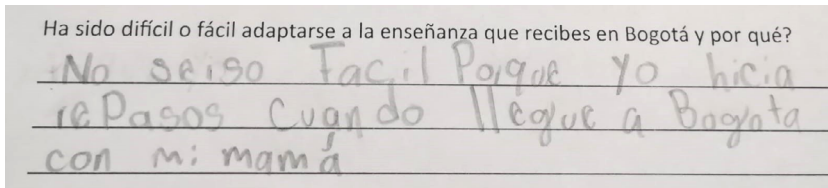 Ha sido difícil o fácil adaptarse a la enseñanza que recibes en Bogotá y por qué?
No seiso Facil Porque yo hicia
rePasos Cuando llegue a Bogota
con mi mamá